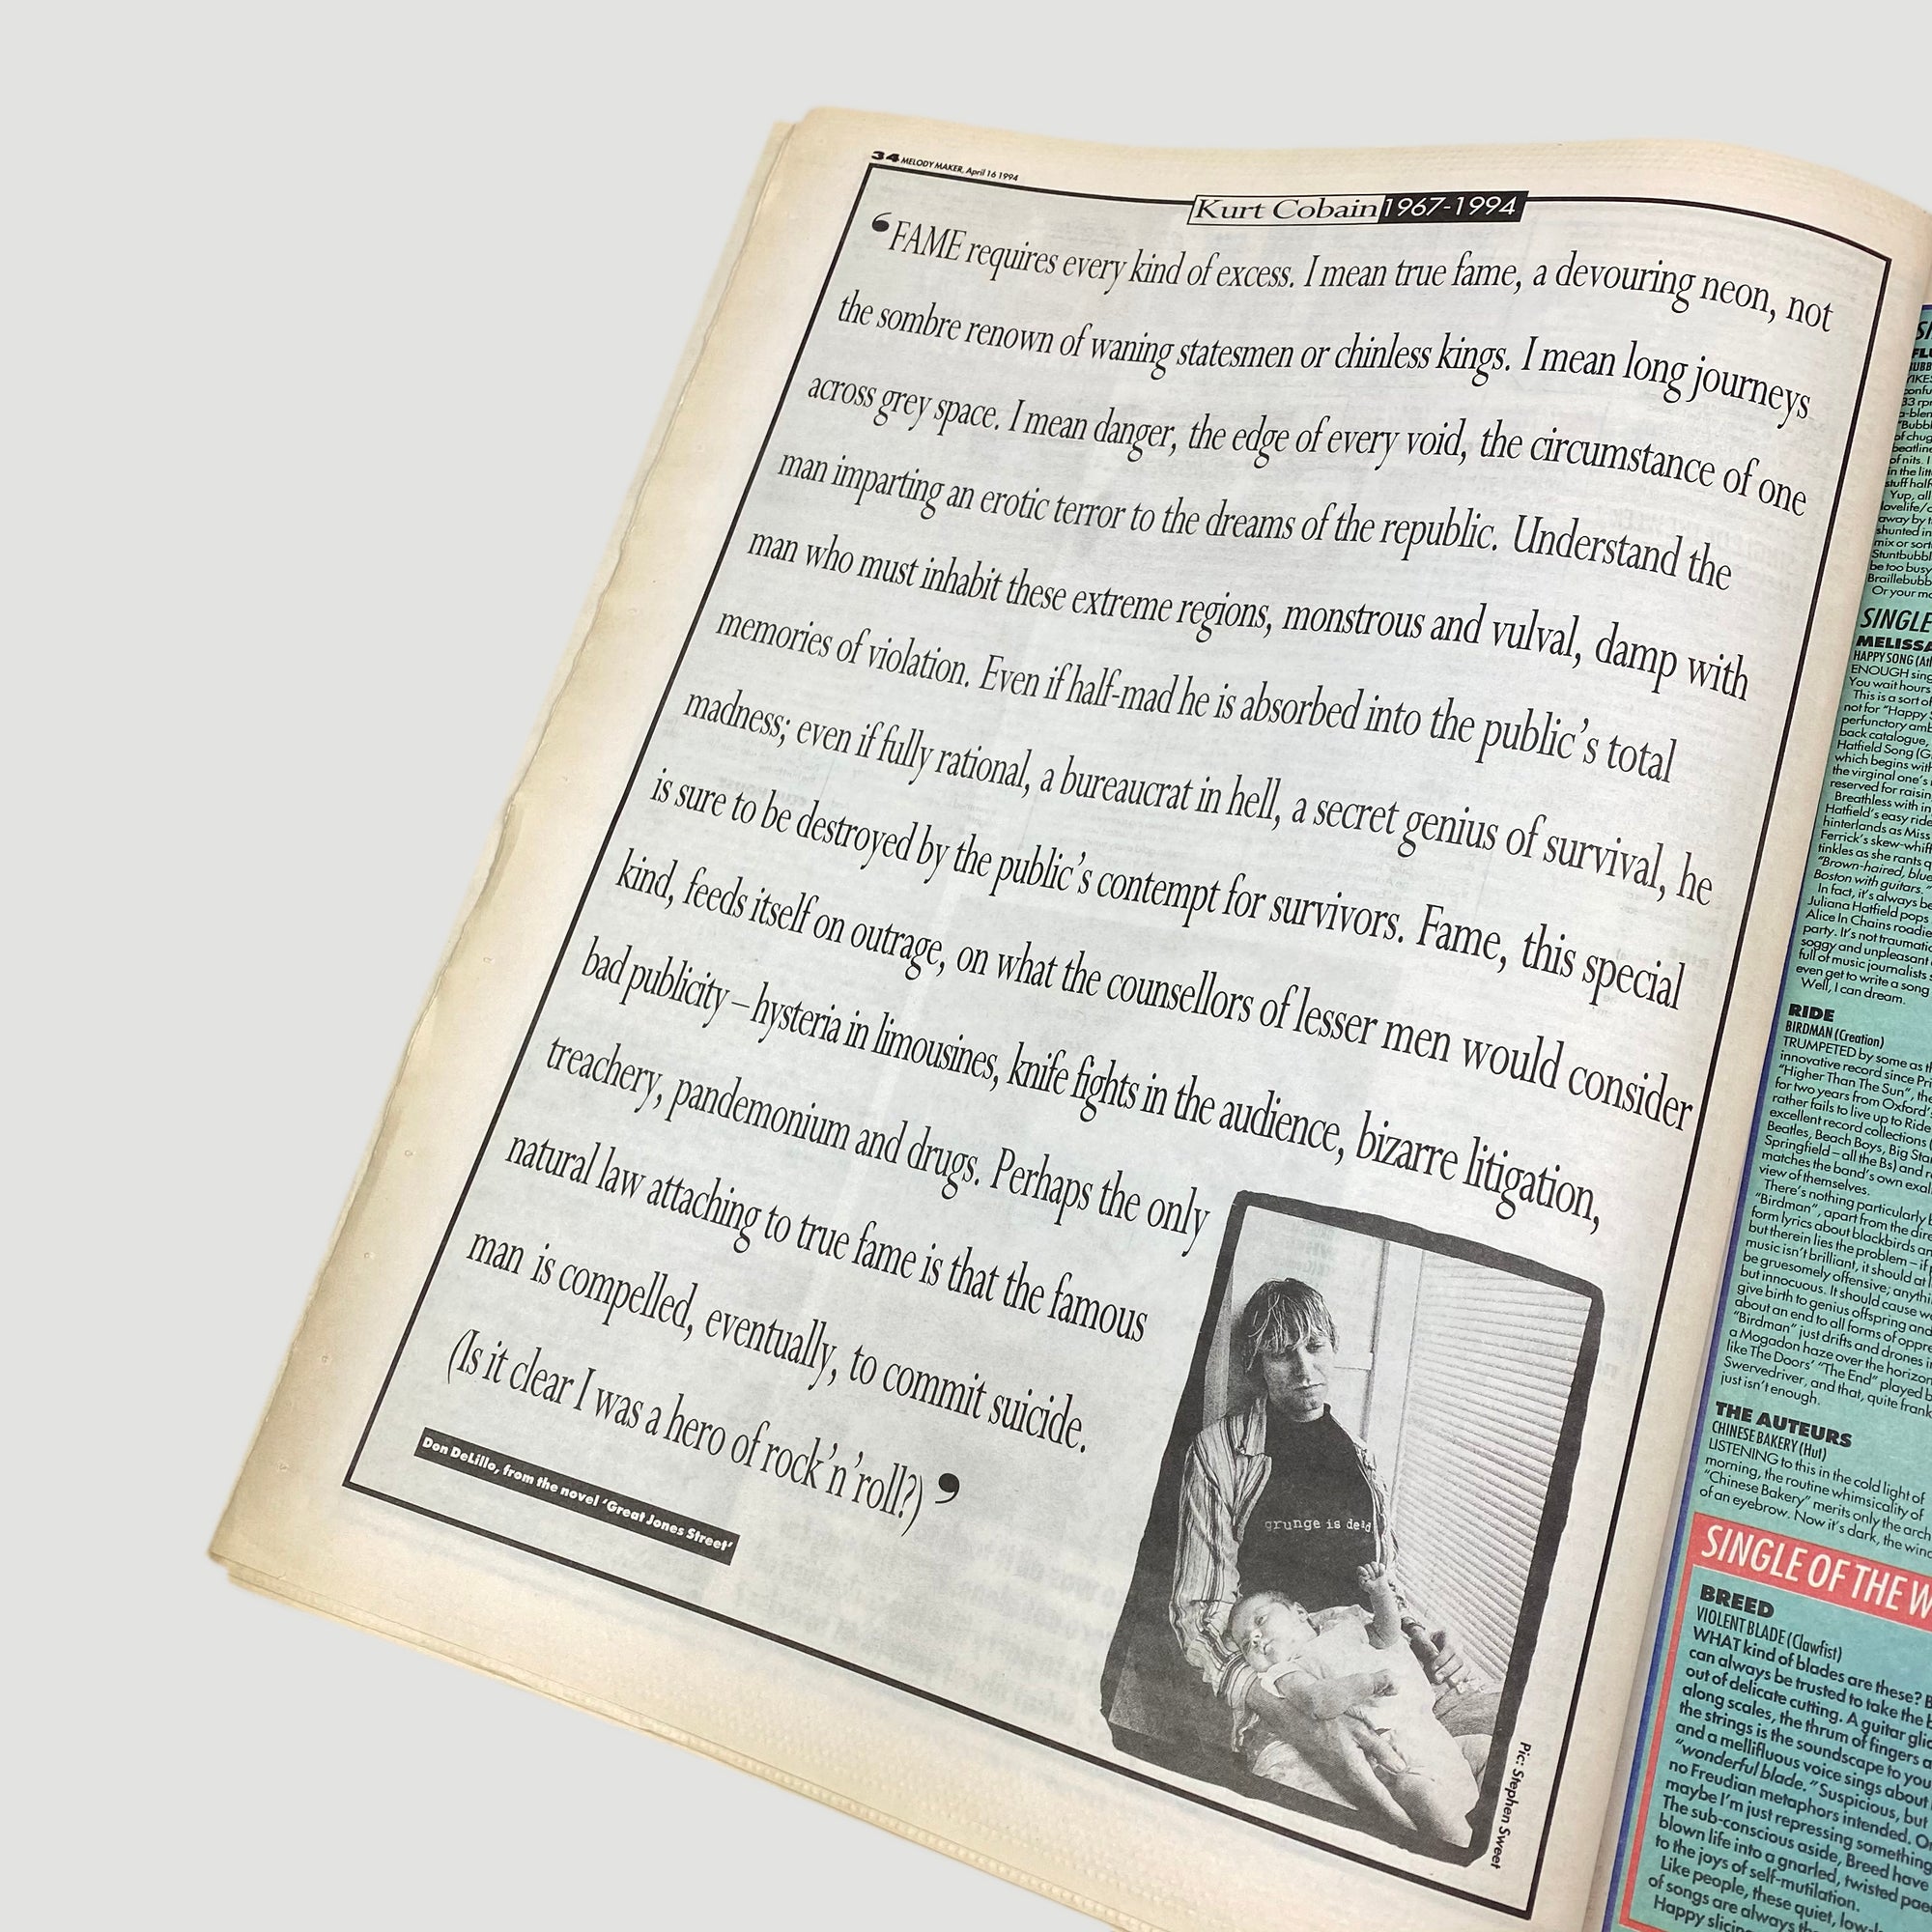 34 MELODY MAKER, April 16 1994
Kurt Cobain 1967-1994
‘FAME requires every kind of excess. I mean true fame, a devouring neon, not
the sombre renown of waning statesmen or chinless kings. I mean long journeys
across grey space. I mean danger, the edge of every void, the circumstance of one
man imparting an erotic terror to the dreams of the republic. Understand the
man who must inhabit these extreme regions, monstrous and vulval, damp with
memories of violation. Even if half-mad he is absorbed into the public’s total
madness; even if fully rational, a bureaucrat in hell, a secret genius of survival, he
is sure to be destroyed by the public’s contempt for survivors. Fame, this special
kind, feeds itself on outrage, on what the counsellors of lesser men would consider
bad publicity – hysteria in limousines, knife fights in the audience, bizarre litigation,
treachery, pandemonium and drugs. Perhaps the only
natural law attaching to true fame is that the famous
man is compelled, eventually, to commit suicide.
(Is it clear I was a hero of rock’n’roll?)’
Don DeLillo, from the novel ‘Great Jones Street’
grunge is dead
Pic: Stephen Sweet
SINGLE
MELISSA
HAPPY SONG
ENOUGH sing
You wait hours
This is a sort of
not for "Happy
perfunctory amb
back catalogue,
Hatfield Song (G
which begins with
the virginal one's
reserved for raisin
Breathless with in
Hatfield's easy ride
hinterlands as Miss
Ferrick's skew-whiff
tinkles as she rants q
"Brown-haired, blue
Boston with guitars."
In fact, it's always be
Juliana Hatfield pops
Alice In Chains roadie
party. It's not traumatic
soggy and unpleasant
full of music journalists
even get to write a song
Well, I can dream.
RIDE
BIRDMAN (Creation)
TRUMPETED by some as th
innovative record since Pri
"Higher Than The Sun", the
for two years from Oxford's
rather fails to live up to Ride
excellent record collections
Beatles, Beach Boys, Big Sta
Springfield – all the Bs) and r
matches the band's own exal
view of themselves.
There's nothing particularly
"Birdman", apart from the dire
form lyrics about blackbirds an
but therein lies the problem – if
music isn't brilliant, it should at l
be gruesomely offensive; anythi
but innocuous. It should cause w
give birth to genius offspring and
about an end to all forms of oppre
"Birdman" just drifts and drones i
a Mogadon haze over the horizon
like The Doors' "The End" played b
Swervedriver, and that, quite frank
just isn't enough.
THE AUTEURS
CHINESE BAKERY (Hut)
LISTENING to this in the cold light of
morning, the routine whimsicality of
"Chinese Bakery" merits only the arch
of an eyebrow. Now it's dark, the wind
SINGLE OF THE W
BREED
VIOLENT BLADE (Clawfist)
WHAT kind of blades are these? B
can always be trusted to take the b
out of delicate cutting. A guitar glid
along scales, the thrum of fingers a
the strings is the soundscape to you
and a mellifluous voice sings about
"wonderful blade." Suspicious, but
no Freudian metaphors intended. O
maybe I'm just repressing something
The sub-conscious aside, Breed have
blown life into a gnarled, twisted pae
to the joys of self-mutilation.
Like people, these quiet, low-k
of songs are always th
Happy slicin